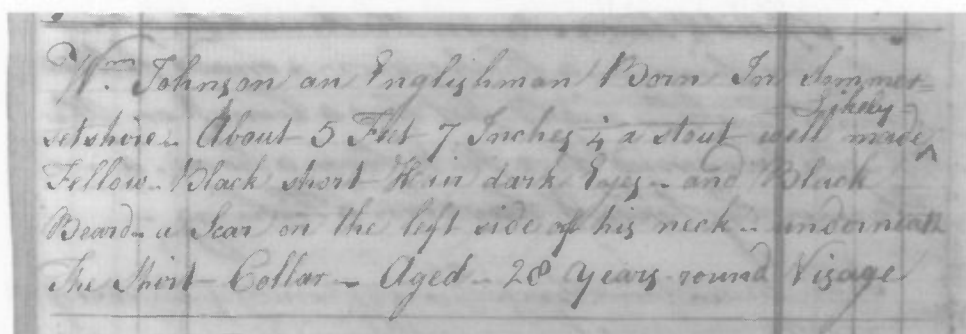 Wm Johnson an Englishman Born In Sommer=
setshire - About 5 Feet 7 Inches ¼ a stout well made
Likely
Fellow - Black short Hair dark Eyes - and Black
Beard - a Scar on the left side of his neck - underneath
The Shirt Collar - Aged - 28 years - round Visage